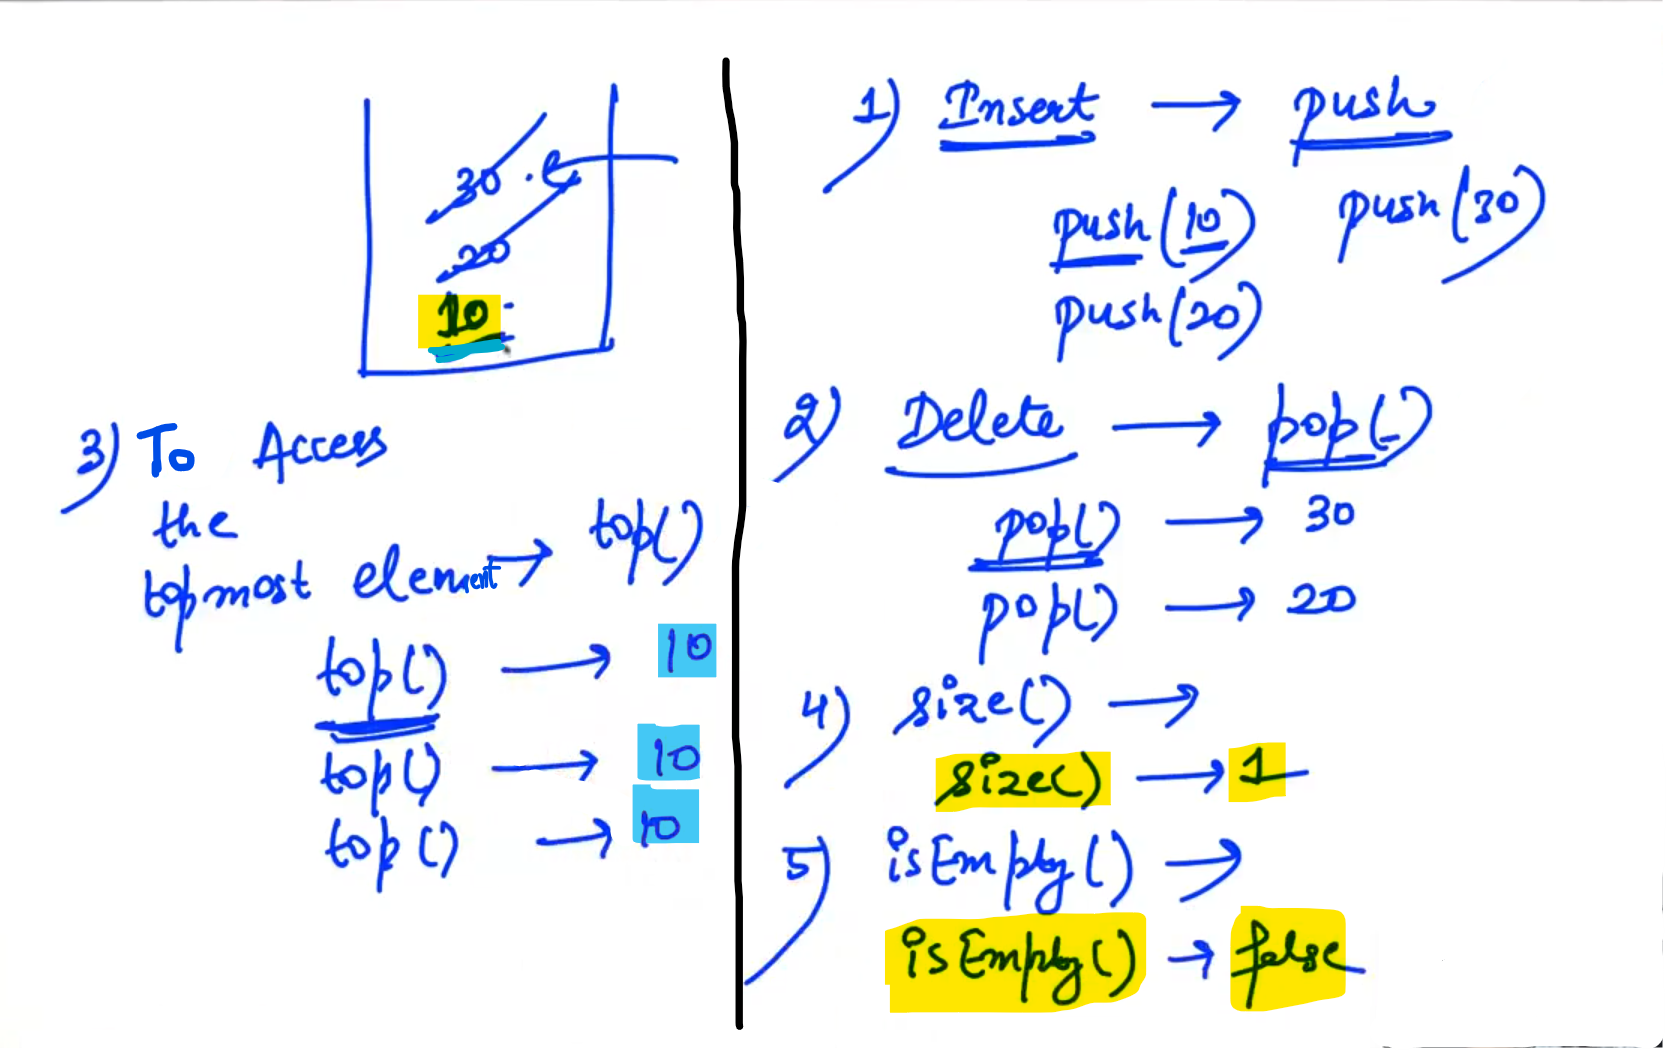 30 . e
20
10
3) To Access
the
topmost element → top()
top() → 10
top() → 10
top() → 10
1) Insert → push
push(10) push(30)
push(20)
2) Delete → pop()
pop() → 30
pop() → 20
4) size() →
size() → 1
5) isEmpty() →
isEmpty() → false